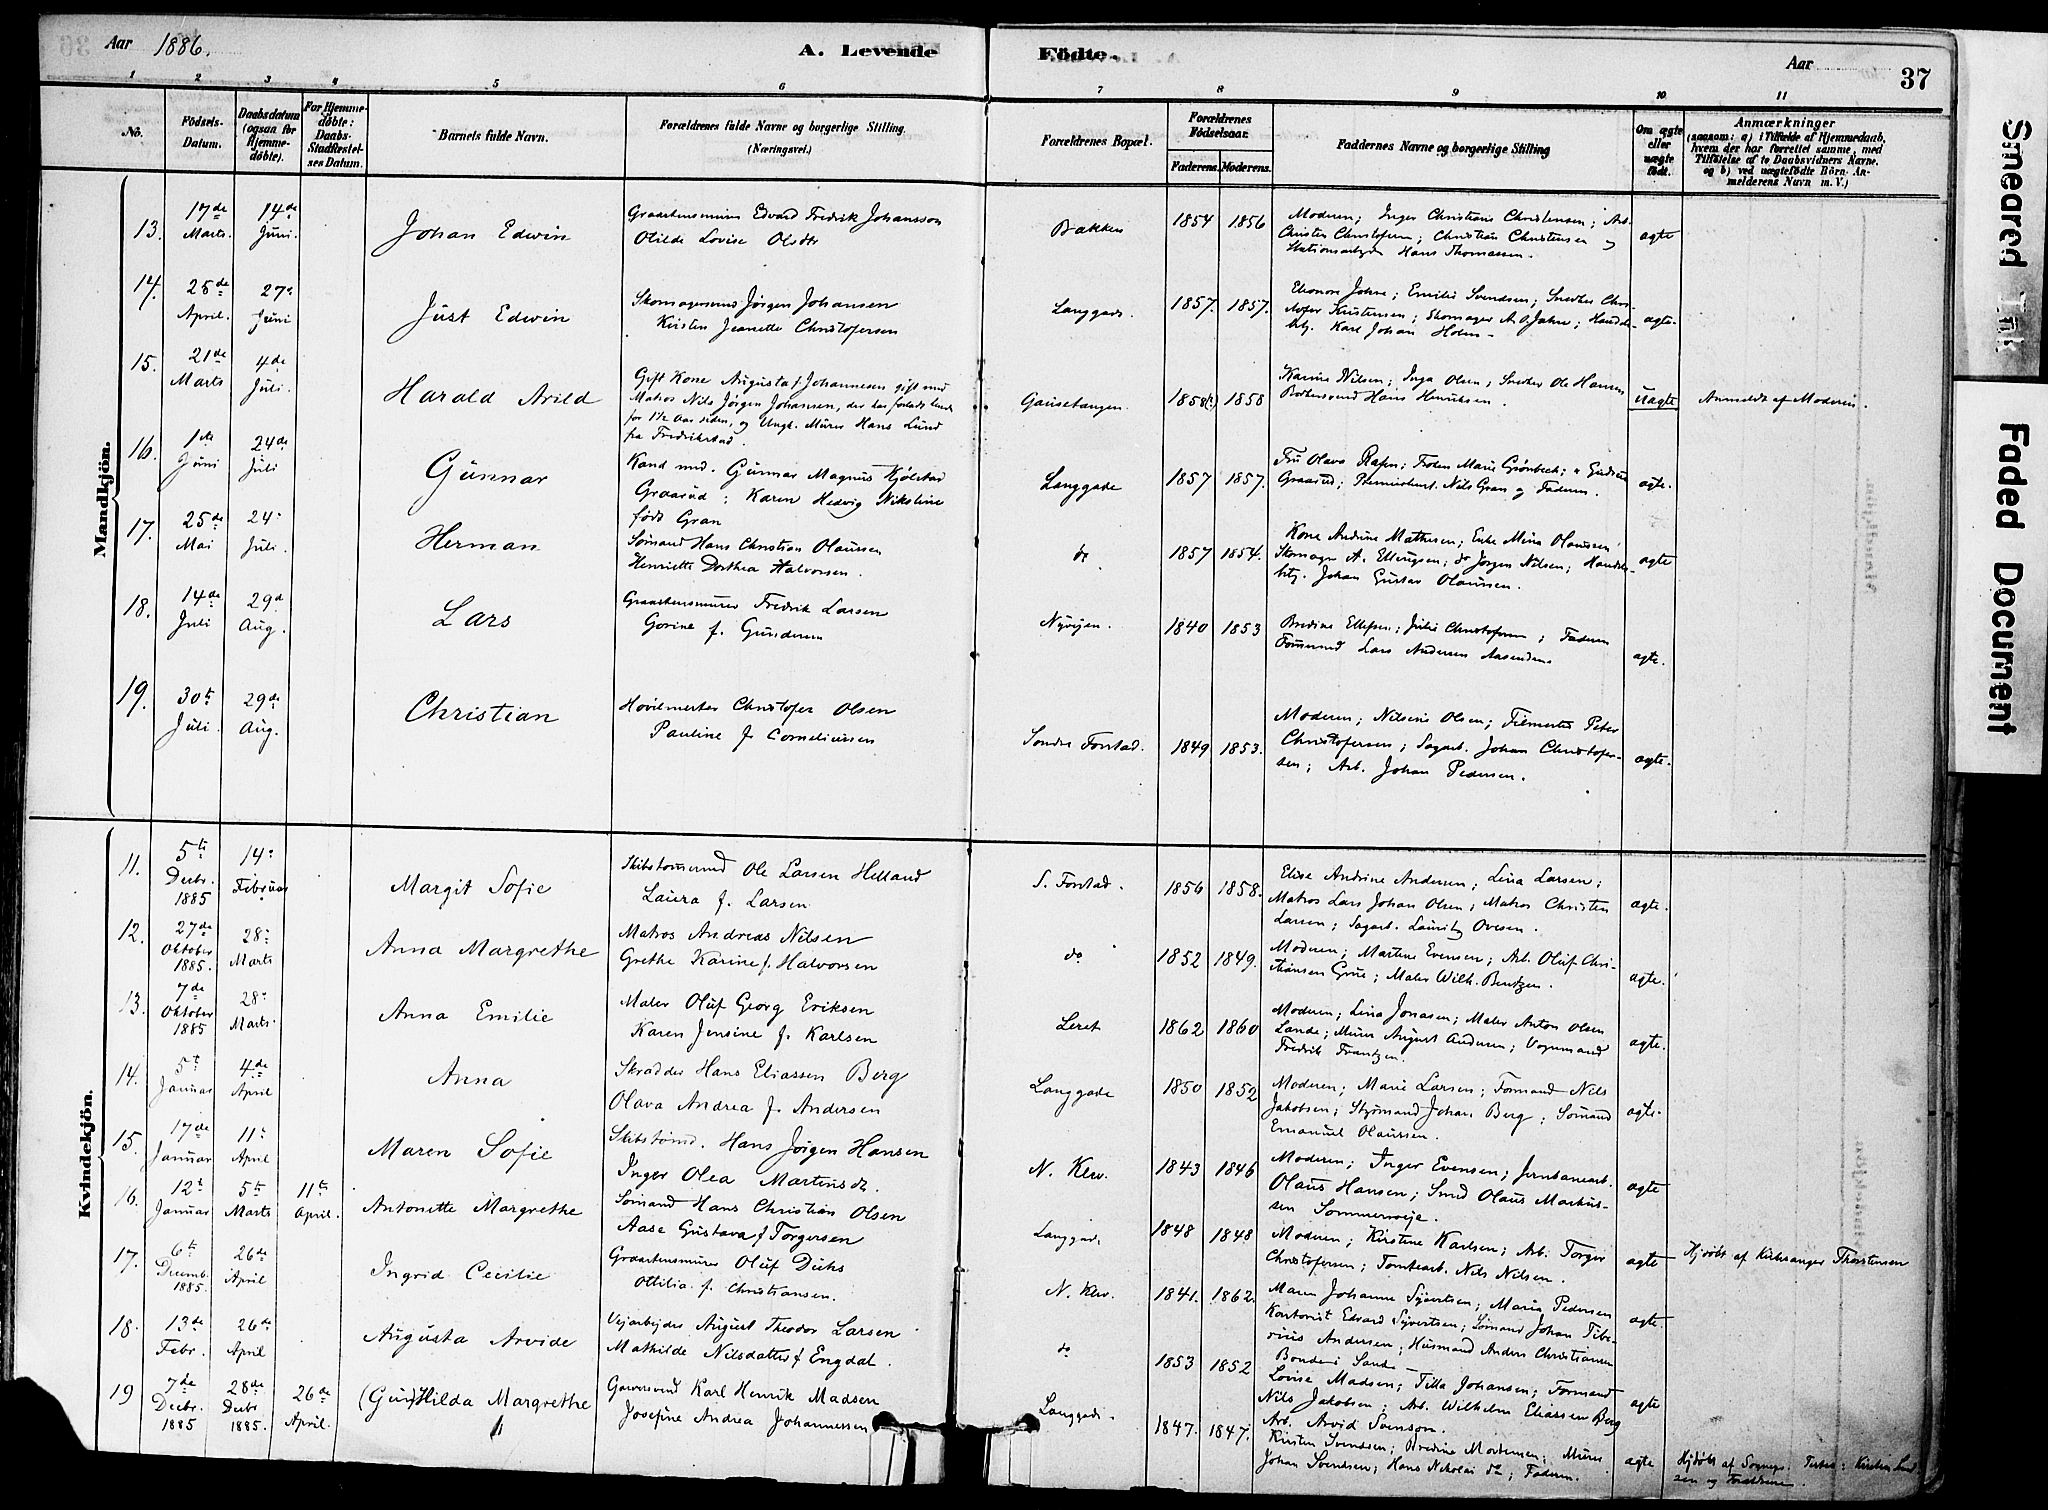 Aar 1886.
A. Levende Födte.
Aar
37
1 2 3 4 5 6 7 8 9 10 11
No.
Födsels-Datum.
Daabsdatum (ogsaa for Hjemmedöbte).
For Hjemmedöbte: Daabs-Stadfæstelses Datum.
Barnets fulde Navn.
Forældrenes fulde Navne og borgerlige Stilling. (Næringsvei.)
Forældrenes Bopæl.
Forældrenes Födselsaar.
Faderens. Moderens.
Faddernes Navne og borgerlige Stilling
Om ægte eller uægte födt.
Anmærkninger
(saasom: a) i Tilfælde af Hjemmedaab, hvem der har forrettet samme, med Tilföielse af to Daabsvidners Navne. og b) ved uægtefödte Börn Anmelderens Navn m. V.)
Mandkjön.
13. 17de Marts. 14de Juni. Johan Edwin
Edvard Fredrik Johansson
Otilde Lovise Olsdtr
Bakken 1854 1856
Moderen; Inger Christiane Christensen; Arb.
Christen Christofersen; Christian Christensen og
Stationsarbeider Hans Thomassen.
ægte
14. 25de April. 27e Juni Just Edwin
Skomagersvend Jørgen Johansen
Kirsten Jeanette Christofersen
Langgade. 1857. 1857.
Eleonore Jahre; Emilie Svendsen; Snedker Chri-
stofer Kristensen; Skomager A. O. Jahre; Handels-
btj. Karl Johan Holm.
ægte.
15. 21de Marts 4de Juli. Harald Arild
Gift Kone Augusta f. Johannesen gift med
Matros Nils Jørgen Johansen, der har forladt landet
for 1½ Aar siden, og Ungk. Murer Hans Lund
fra Fredrikstad.
Gausetangen. 1858(?) 1858
Karine Nilsen; Inga Olsen; Snedker Ole Hansen
Hans Henriksen.
uægte
Anmeldt af Moderen.
16. 1ste Juni 24de Juli Gunnar
Kand. med. Gunnar Magnus Kjølstad
Graarud; Karen Hedvig Nikoline
født Gran
Langgade 1857 1857.
Fru Olava Rafen; Frøken Marie Grønbech; " Gudrun
Graarud; Premierlieut. Nils Gran og Faderen.
ægte.
17. 25de Mai 24e Juli. Herman
Sømand Hans Christian Olaussen
Henriette Dorthea Halvorsen.
do 1857 1854.
Kone Andrine Mathesen; Enke Mina Olaussen
Skomager A. Ellingsen; do Jørgen Nilsen; Handels-
btj. Johan Gustav Olaussen.
ægte
18. 14de Juli 29d Aug. Lars
Fredrik Larsen
Gorine f. Gundersen
Nyvejen. 1840 1853
Bredine Ellefsen; Julie Christofersen; Faderen
Tømmermd Lars Andersen Aasenden
ægte.
19. 30te Juli. 29de Aug. Christian
Christofer Olsen
Pauline f. Corneliussen
Søndre Forstad. 1849 1853.
Moderen; Nilsine Olsen; Peter
Christofersen; Sagarb. Johan Christofer-
sen; Arb. Johan Pedersen.
ægte.
Kvindekjön.
11. 5te Decbr. 1885 14e Februar Margit Sofie
Skibstømmermd Ole Larsen Helland
Laura f. Larsen
S. Forstad. 1856 1858.
Elise Andrine Andersen; Lina Larsen;
Matros Lars Johan Olsen; Matros Christen
Larsen; Sagarb. Lauritz Ovesen.
ægte.
12. 27de Oktober 1885. 28e Marts Anna Margrethe
Matros Andreas Nilsen
Grethe Karine f. Halvorsen
do 1852 1849.
Moderen; Martine Evensen; Arb. Oluf Chri-
stiansen Grue; Maler Wilh. Bentzen.
ægte.
13. 7de Oktober 1885 28e Marts. Anna Emilie
Maler Oluf Georg Eriksen
Karen Jensine f. Karlsen
Leret 1862 1860
Moderen; Lina Jonasen; Maler Anton Olsen
Lande; Murer August Andersen; Vognmand
Fredrik Frantzen.
ægte.
14. 5t Januar 4de April Anna
Skrædder Hans Eliassen Berg
Olava Andrea f. Andersen
Langgade 1850 1852
Moderen; Marie Larsen; Formand Nils
Jakobsen; Styrmand Johan Berg; Sømand
Emanuel Olaussen.
ægte.
15. 17de Januar 11e April Maren Sofie
Skibstømd. Hans Jørgen Hansen
Inger Olea Martinsdr.
N. Klev. 1843 1846
Moderen; Inger Evensen; Jernbanearb.
Olaus Hansen; Smed Olaus Markus-
sen Sommerveje.
ægte
16. 12t Januar 5te Marts 11te April. Antonette Margrethe
Sømand Hans Christian Olsen
Aase Gustava f Torgersen
Langgade 1848 1848
Moderen; Kirstene Karlsen; Arb. Torger
Christofersen; Tomtearb. Nils Nilsen.
ægte
Hjdøbt af Kirkesanger Thorstensen
17. 6te Decemb. 1885. 26de April Ingrid Cecilie
Oluf Dicks
Ottilia f. Christiansen.
N. Klev. 1841. 1862.
Maren Johanne Syvertsen; Maria Pedersen
Edvard Syvertsen; Sømand Johan Tibe-
rius Andersen; Husmand Anders Christiansen
Bonden i Sande
ægte.
18. 13de Febr. 26de April Augusta Arvide
Vejarbejder August Theodor Larsen
Mathilde Nilsdatter f Engdal.
do 1853 1852
Lovise Madsen; Tilla Johansen; Formand
Nils Jakobsen; Arb. Wilhelm Eliassen Berg
Arb. Arvid Svenson.
ægte
19 7de Decbr. 1885 28de Decbr 1885. 26de April. (Gun)Hilda Margrethe
Garversvend Karl Henrik Madsen
Josefine Andrea Johannessen
Langgade. 1847. 1847.
Kirsten Svendsen; Bredine Mortensen; Murer
Johan Svendsen; Hans Nikolai do; Faderen.
ægte
Hjdøbt af Sognepr. Testes: Kirsten Svend-
sen og Forældrene.
Smeared Ink
Faded Document